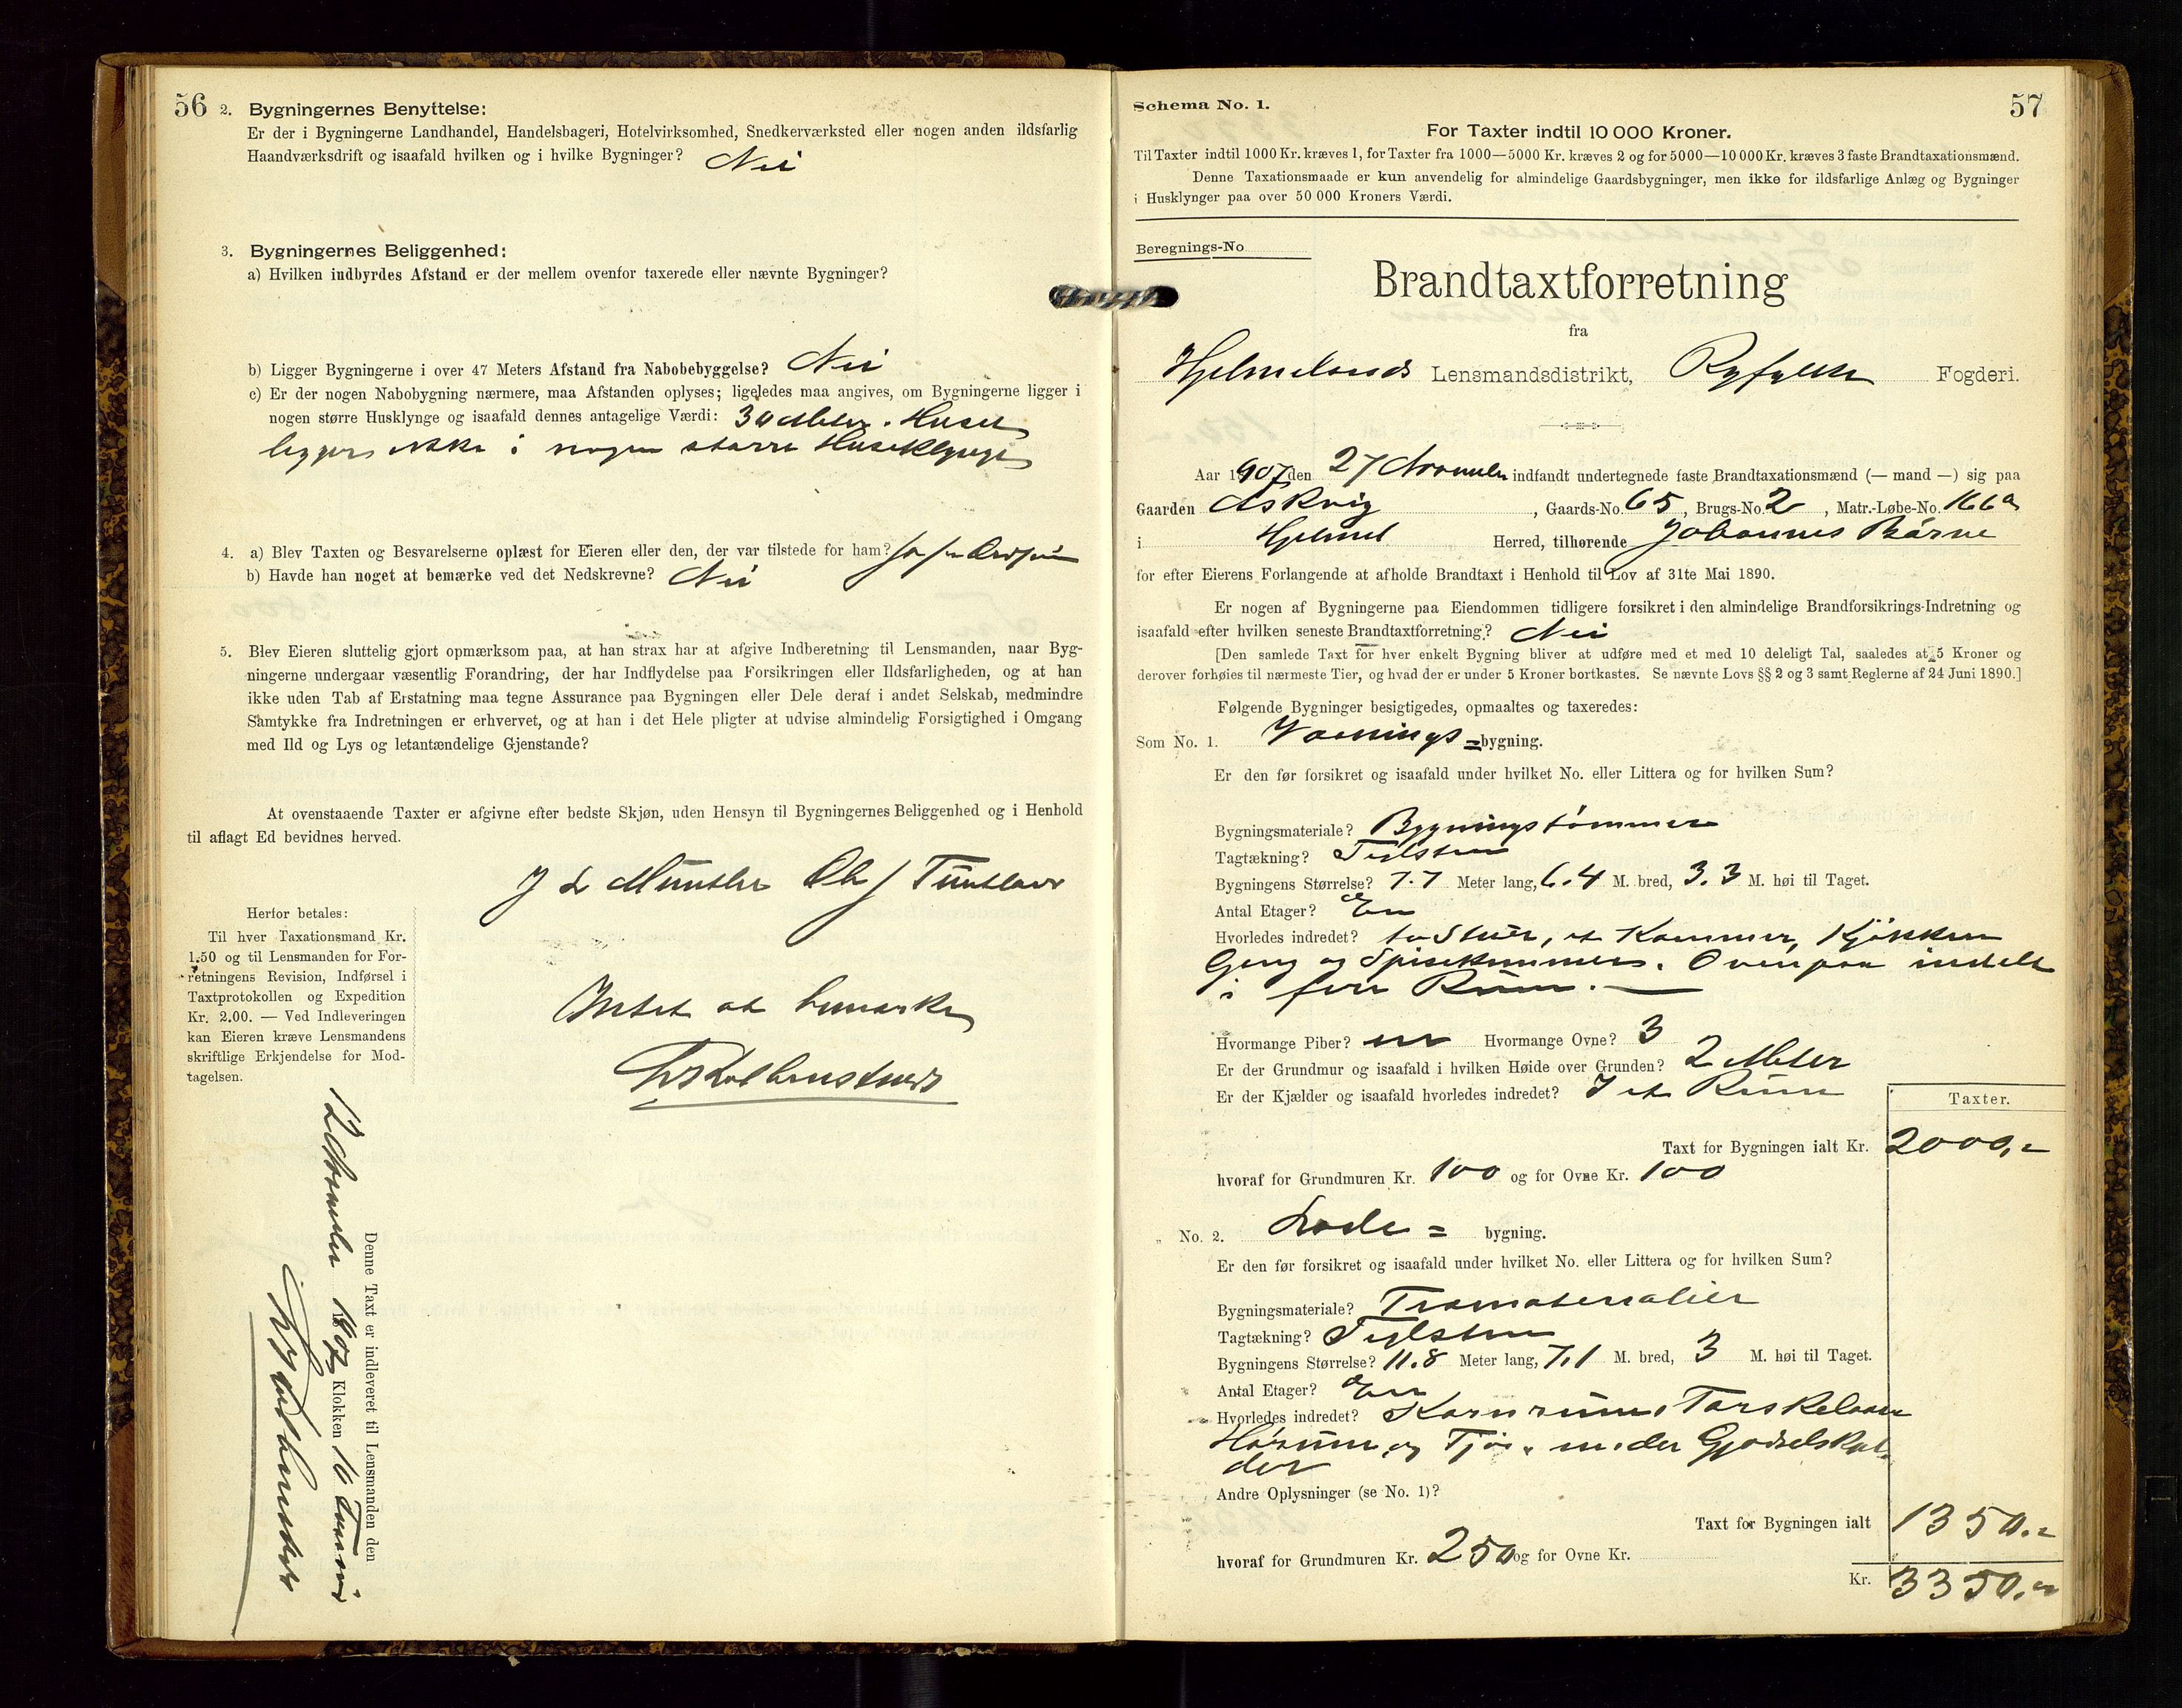 56
2. Bygningernes Benyttelse:
Er der i Bygningerne Landhandel, Handelsbageri, Hotelvirksomhed, Snedkerværksted eller nogen anden ildsfarlig
Haandværksdrift og isaafald hvilken og i hvilke Bygninger? Nei
3. Bygningernes Beliggenhed:
a) Hvilken indbyrdes Afstand er der mellem ovenfor taxerede eller nævnte Bygninger?
b) Ligger Bygningerne i over 47 Meters Afstand fra Nabobebyggelse? Nei
c) Er der nogen Nabobygning nærmere, maa Afstanden oplyses; ligeledes maa angives, om Bygningerne ligger i
nogen større Husklynge og isaafald dennes antagelige Værdi: 30 Meter. Huset
ligger ikke i nogen større Huseklynge
4. a) Blev Taxten og Besvarelserne oplæst for Eieren eller den, der var tilstede for ham? Ja
b) Havde han noget at bemærke ved det Nedskrevne? Nei
5. Blev Eieren sluttelig gjort opmærksom paa, at han strax har at afgive Indberetning til Lensmanden, naar Byg-
ningerne undergaar væsentlig Forandring, der har Indflydelse paa Forsikringen eller Ildsfarligheden, og at han
ikke uden Tab af Erstatning maa tegne Assurance paa Bygningen eller Dele deraf i andet Selskab, medmindre
Samtykke fra Indretningen er erhvervet, og at han i det Hele pligter at udvise almindelig Forsigtighed i Omgang
med Ild og Lys og letantændelige Gjenstande?
At ovenstaaende Taxter er afgivne efter bedste Skjøn, uden Hensyn til Bygningernes Beliggenhed og i Henhold
til aflagt Ed bevidnes herved.
Intet at bemærke
Herfor betales:
Til hver Taxationsmand Kr.
1.50 og til Lensmanden for For-
retningens Revision, Indførsel i
Taxtprotokollen og Expedition
Kr. 2.00. — Ved Indleveringen
kan Eieren kræve Lensmandens
skriftlige Erkjendelse for Mod-
tagelsen.
Denne Taxt er indleveret til Lensmanden den
1907 Klokken 10
57
Schema No. 1.
For Taxter indtil 10 000 Kroner.
Til Taxter indtil 1000 Kr. kræves 1, for Taxter fra 1000—5000 Kr. kræves 2 og for 5000—10 000 Kr. kræves 3 faste Brandtaxationsmænd.
Denne Taxationsmaade er kun anvendelig for almindelige Gaardsbygninger, men ikke for ildsfarlige Anlæg og Bygninger
i Husklynger paa over 50 000 Kroners Værdi.
Beregnings-No
Brandtaxtforretning
fra
Hjelmelands Lensmandsdistrikt, Ryfylke Fogderi.
Aar 1907 den 27 November indfandt undertegnede faste Brandtaxationsmænd (— mand —) sig paa
Gaarden Askvig, Gaards-No. 65, Brugs-No. 2, Matr.-Løbe-No. 166a
i Hjelmel Herred, tilhørende Johannes Børne
for efter Eierens Forlangende at afholde Brandtaxt i Henhold til Lov af 31te Mai 1890.
Er nogen af Bygningerne paa Eiendommen tidligere forsikret i den almindelige Brandforsikrings-Indretning og
isaafald efter hvilken seneste Brandtaxtforretning? Nei
[Den samlede Taxt for hver enkelt Bygning bliver at udføre med et med 10 deleligt Tal, saaledes at 5 Kroner og
derover forhøies til nærmeste Tier, og hvad der er under 5 Kroner bortkastes. Se nævnte Lovs §§ 2 og 3 samt Reglerne af 24 Juni 1890.]
Følgende Bygninger besigtigedes, opmaaltes og taxeredes:
Som No. 1. Vaanings=bygning.
Er den før forsikret og isaafald under hvilket No. eller Littera og for hvilken Sum?
Bygningsmateriale? Bygningstømmer
Tagtækning? Teglsten
Bygningens Størrelse? 7.7 Meter lang, 6.4 M. bred, 3.3 M. høi til Taget.
Antal Etager? En
Hvorledes indredet? to Stuer, et Kammer, Kjøkken
Gang og Spisekammer. Ovenpaa indelt
i fire Rum.
Hvormange Piber? en Hvormange Ovne? 3
Er der Grundmur og isaafald i hvilken Høide over Grunden? 2 Meter
Er der Kjælder og isaafald hvorledes indredet? I et Rum
Taxter.
Taxt for Bygningen ialt Kr. 2000,=
hvoraf for Grundmuren Kr. 100 og for Ovne Kr. 100
„ No. 2. Lade= bygning.
Er den før forsikret og isaafald under hvilket No. eller Littera og for hvilken Sum?
Bygningsmateriale? Træmaterialier
Tagtækning? Teglsten
Bygningens Størrelse? 11.8 Meter lang, 7.1 M. bred, 3 M. høi til Taget.
Antal Etager? En
Hvorledes indredet? Kornrum, Tærskelaave
Hørum og Fjøs, under Gjødselskjæl-
der
Andre Oplysninger (se No. 1)?
Taxt for Bygningen ialt 1350.=
hvoraf for Grundmuren Kr. 250 og for Ovne Kr.
Kr. 3350,=